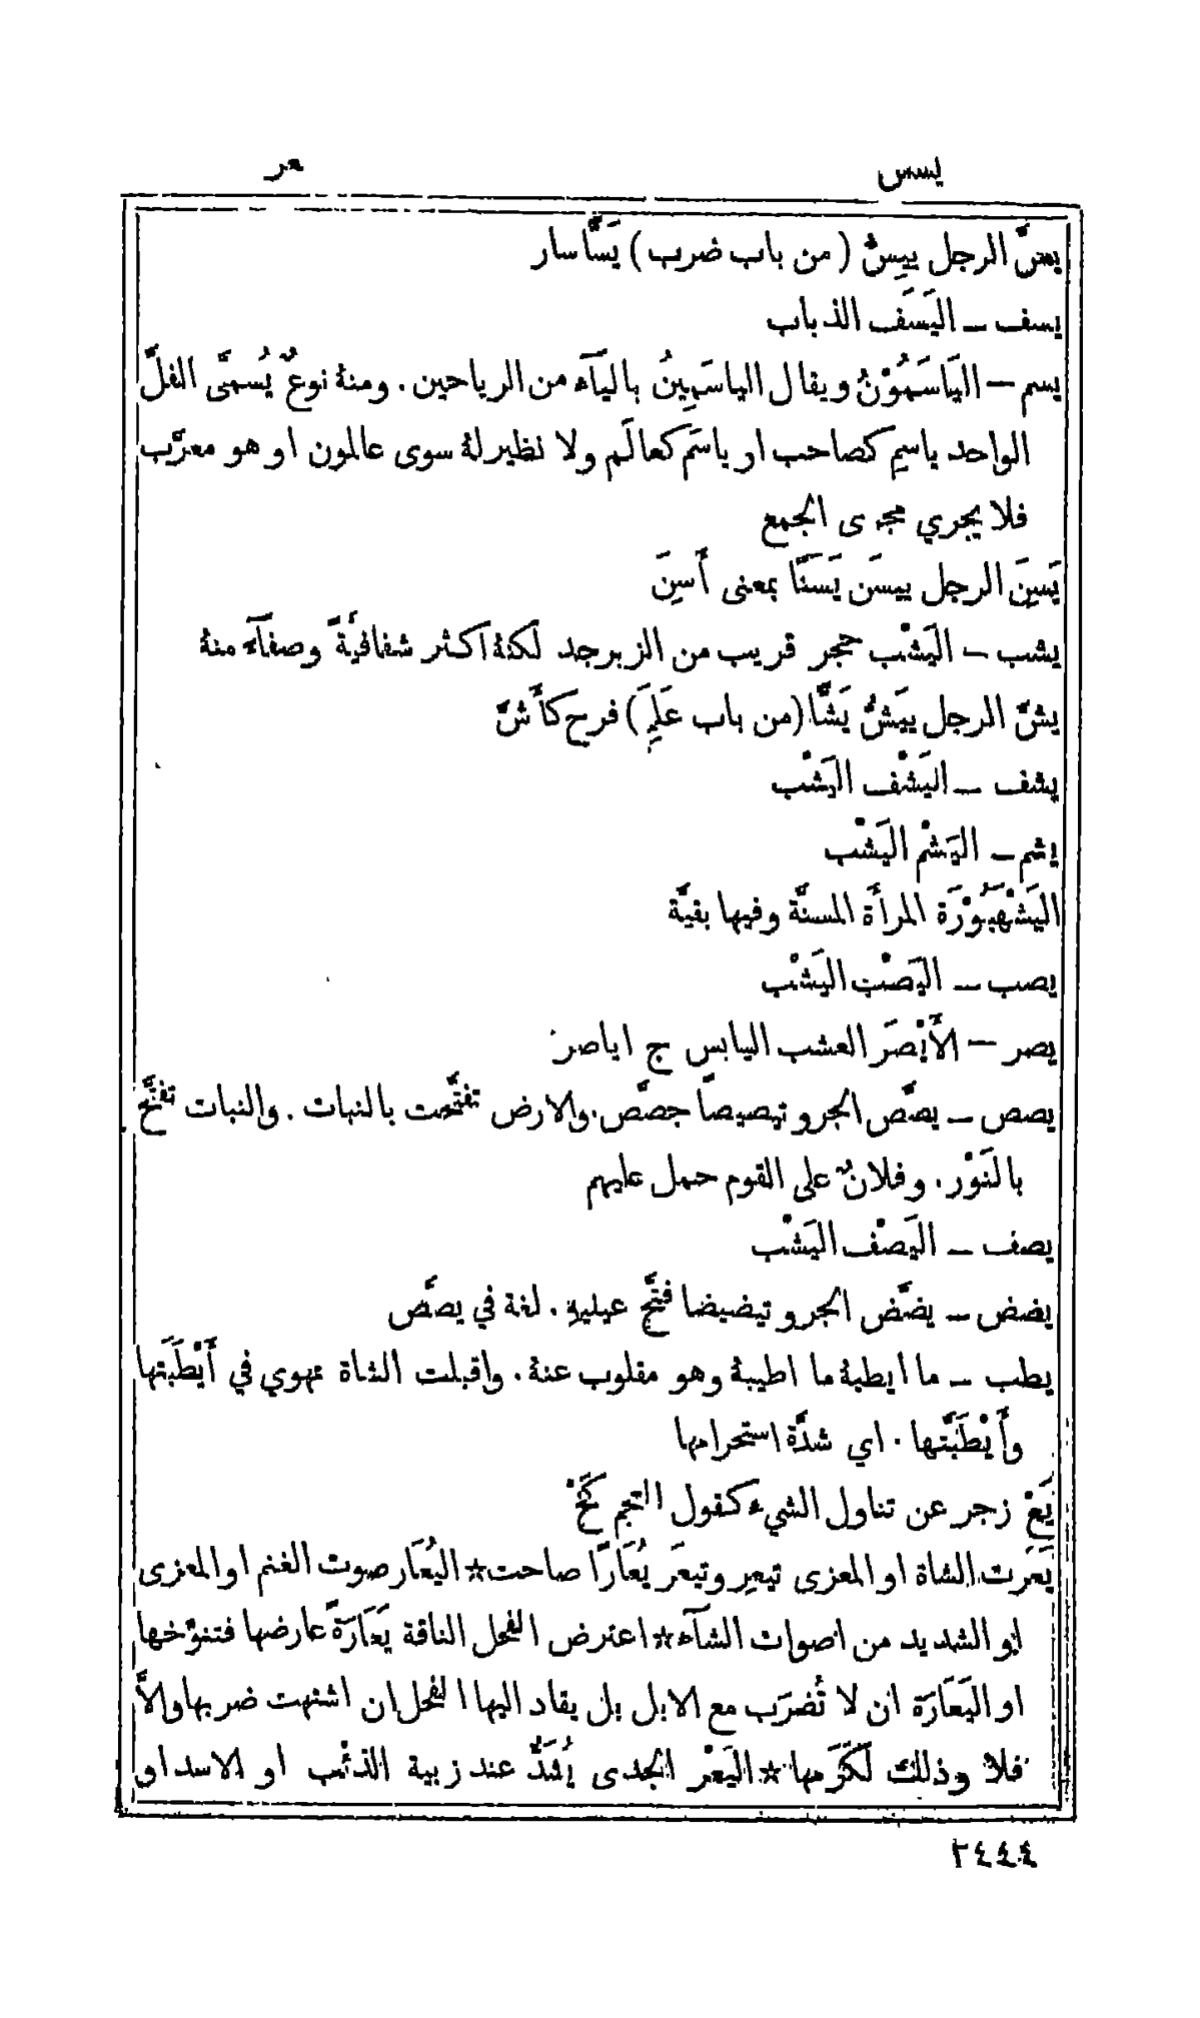 يسس
عر
يسَّ الرجل ييِسُّ (من باب ضرب) يَسًّا سار
يسف ـ اليَسَف الذباب
يسم ـ اليَاسَمُوْنُ ويقال الياسَمِينُ باليآء من الرياحين. ومنهُ نوعٌ يُسمَّى الفلَّ
الواحد ياسِم كصاحب او ياسَم كعالَم ولا نظير لهُ سوى عالمون او هو معرَّب
فلا يجري مجرى الجمع
يَسِنَ الرجل ييسَن يَسَنًا بمعنى أَسِنَ
يشب ـ اليَشْب حجر قريب من الزبرجد لكنهُ اكثر شفافيَّةً وصفآء منهُ
يشَّ الرجل ييَشُّ يَشًّا (من باب عَلِمَ) فرح كأَشَّ
يشف ـ اليَشْف اليَشْب
يشم ـ اليَشْم اليَشْب
اليَشْهَبُوْرَة المرأَة المسنَّة وفيها بقيَّة
يصب ـ اليَصْب اليَشْب
يصر ـ الأَيْصَر العشب اليابس ج اياصر
يصص ـ يصَّص الجرو تيصيصاً جصَّص. والارض تفتَّحت بالنبات. والنبات تفتَّح
بالنَوْر. وفلانٌ على القوم حمل عليهم
يصف ـ اليَصْف اليَشْب
يضض ـ يضَّض الجرو تيضيضا فتَّح عينيهِ. لغة في يصَّص
يطب ـ ما ايطبهُ ما اطيبهُ وهو مقلوب عنهُ. واقبلت الشاة تهوي في أَيْطَبَتها
وأَيْطَبَّتها. اي شدَّة استحرامها
يَعْ زجر عن تناول الشيء كقول العجم كَخْ
يَعَرت الشاة او المعزى تيعِر وتيعَر يُعَارًا صاحت * اليُعَار صوت الغنم او المعزى
او الشديد من اصوات الشآء * اعترض الفحل الناقة يَعَارَةً عارضها فتنوَّخها
او اليَعَارَة ان لا تُضرَب مع الابل بل يقاد اليها الفحل ان اشتهت ضربها والاَّ
فلا وذلك لكَرَمها * اليَعْر الجدى يُشَدُّ عند زبية الذئب او الاسد او
٢٤٤٤